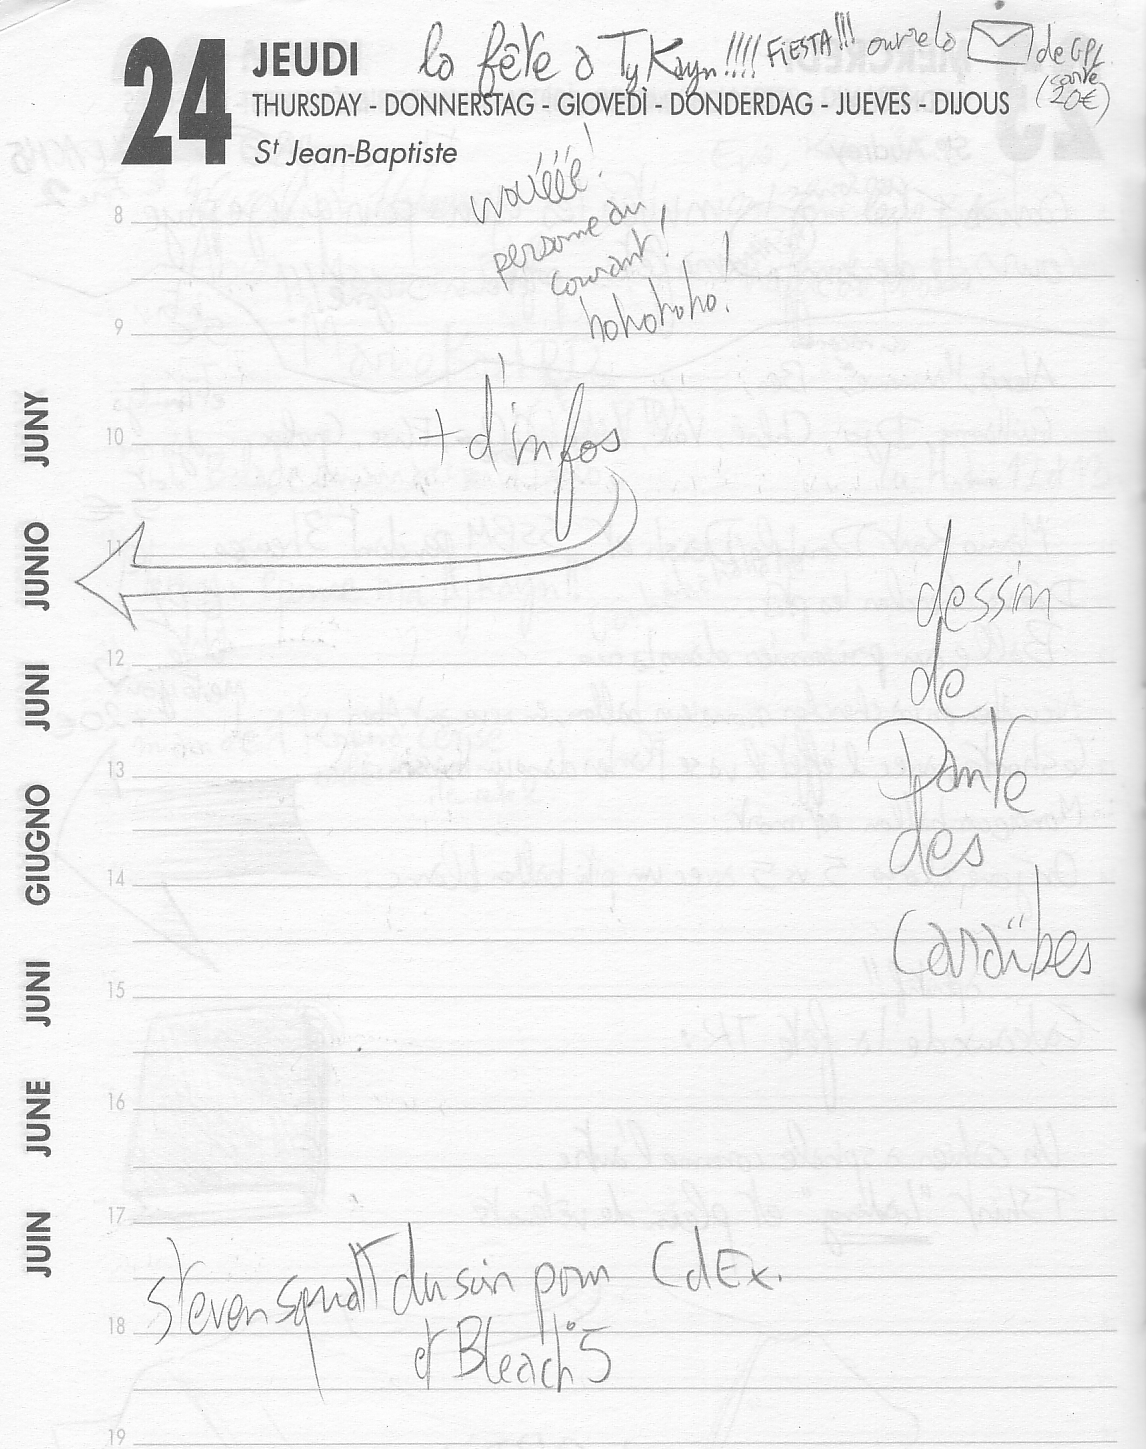 24 JEUDI la fête à Ty Kayn!!!! FIESTA!!! ouvre la de GPL
(carte 20€)
THURSDAY - DONNERSTAG - GIOVEDÌ - DONDERDAG - JUEVES - DIJOUS
St Jean-Baptiste
wouééé!
personne au
courant!
hohohoho!
8
9
+ d'infos
10
11
dessin
de
Dante
des
Caraïbes
12
13
14
15
16
17
steven squatt du soir pour CdEx.
et Bleach 5
18
19
JUIN JUNE JUNI GIUGNO JUNI JUNIO JUNY